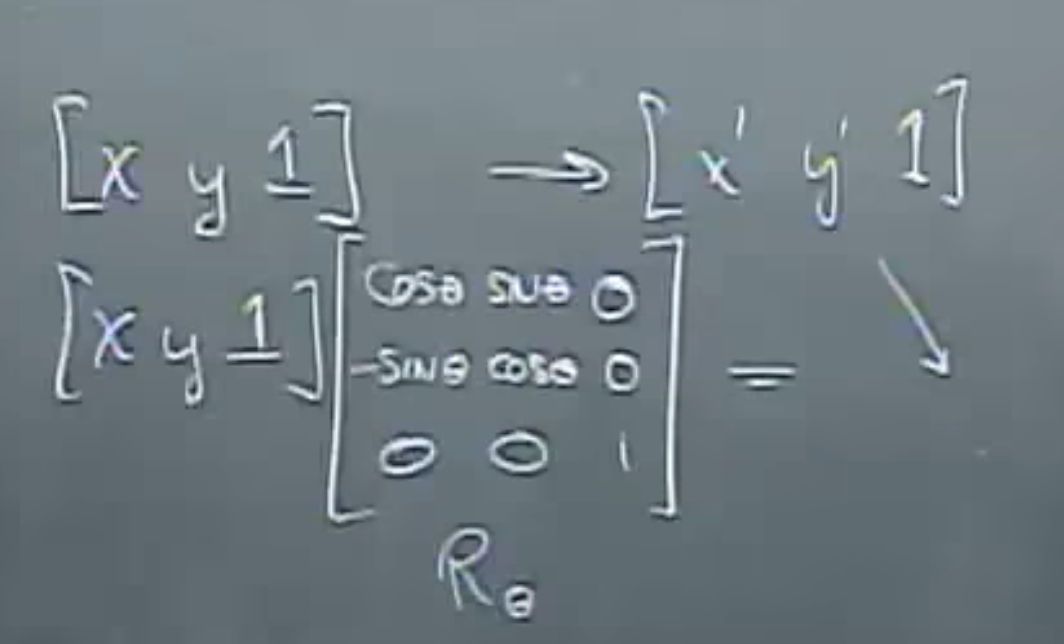 [x y 1] → [x' y' 1]
[x y 1] [cosθ sinθ 0
-sinθ cosθ 0 =
0 0 1]
Rθ